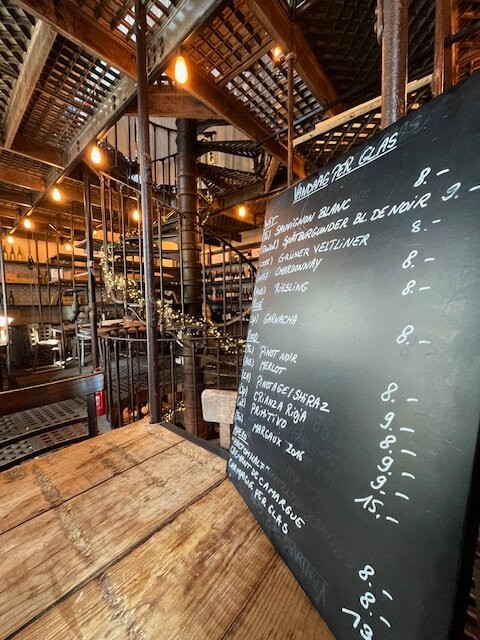 VANDAAG PER GLAS
SAUVIGNON BLANC 8.-
SPÄTBURGUNDER BL. DE NOIR 9.-
GRÜNER VELTLINER 8.-
CHARDONNAY 8.-
RIESLING 8.-
ROSÉ
(SP) GARNACHA 8.-
ROOD
PINOT NOIR 8.-
MERLOT 9.-
(ZA) PINOTAGE/SHIRAZ 8.-
(SP) CRIANZA RIOJA 9.-
PRIMITIVO 9.-
MARGAUX 2016 15.-
CRÉMANT DE CAMARGUE 8.-
PER GLAS